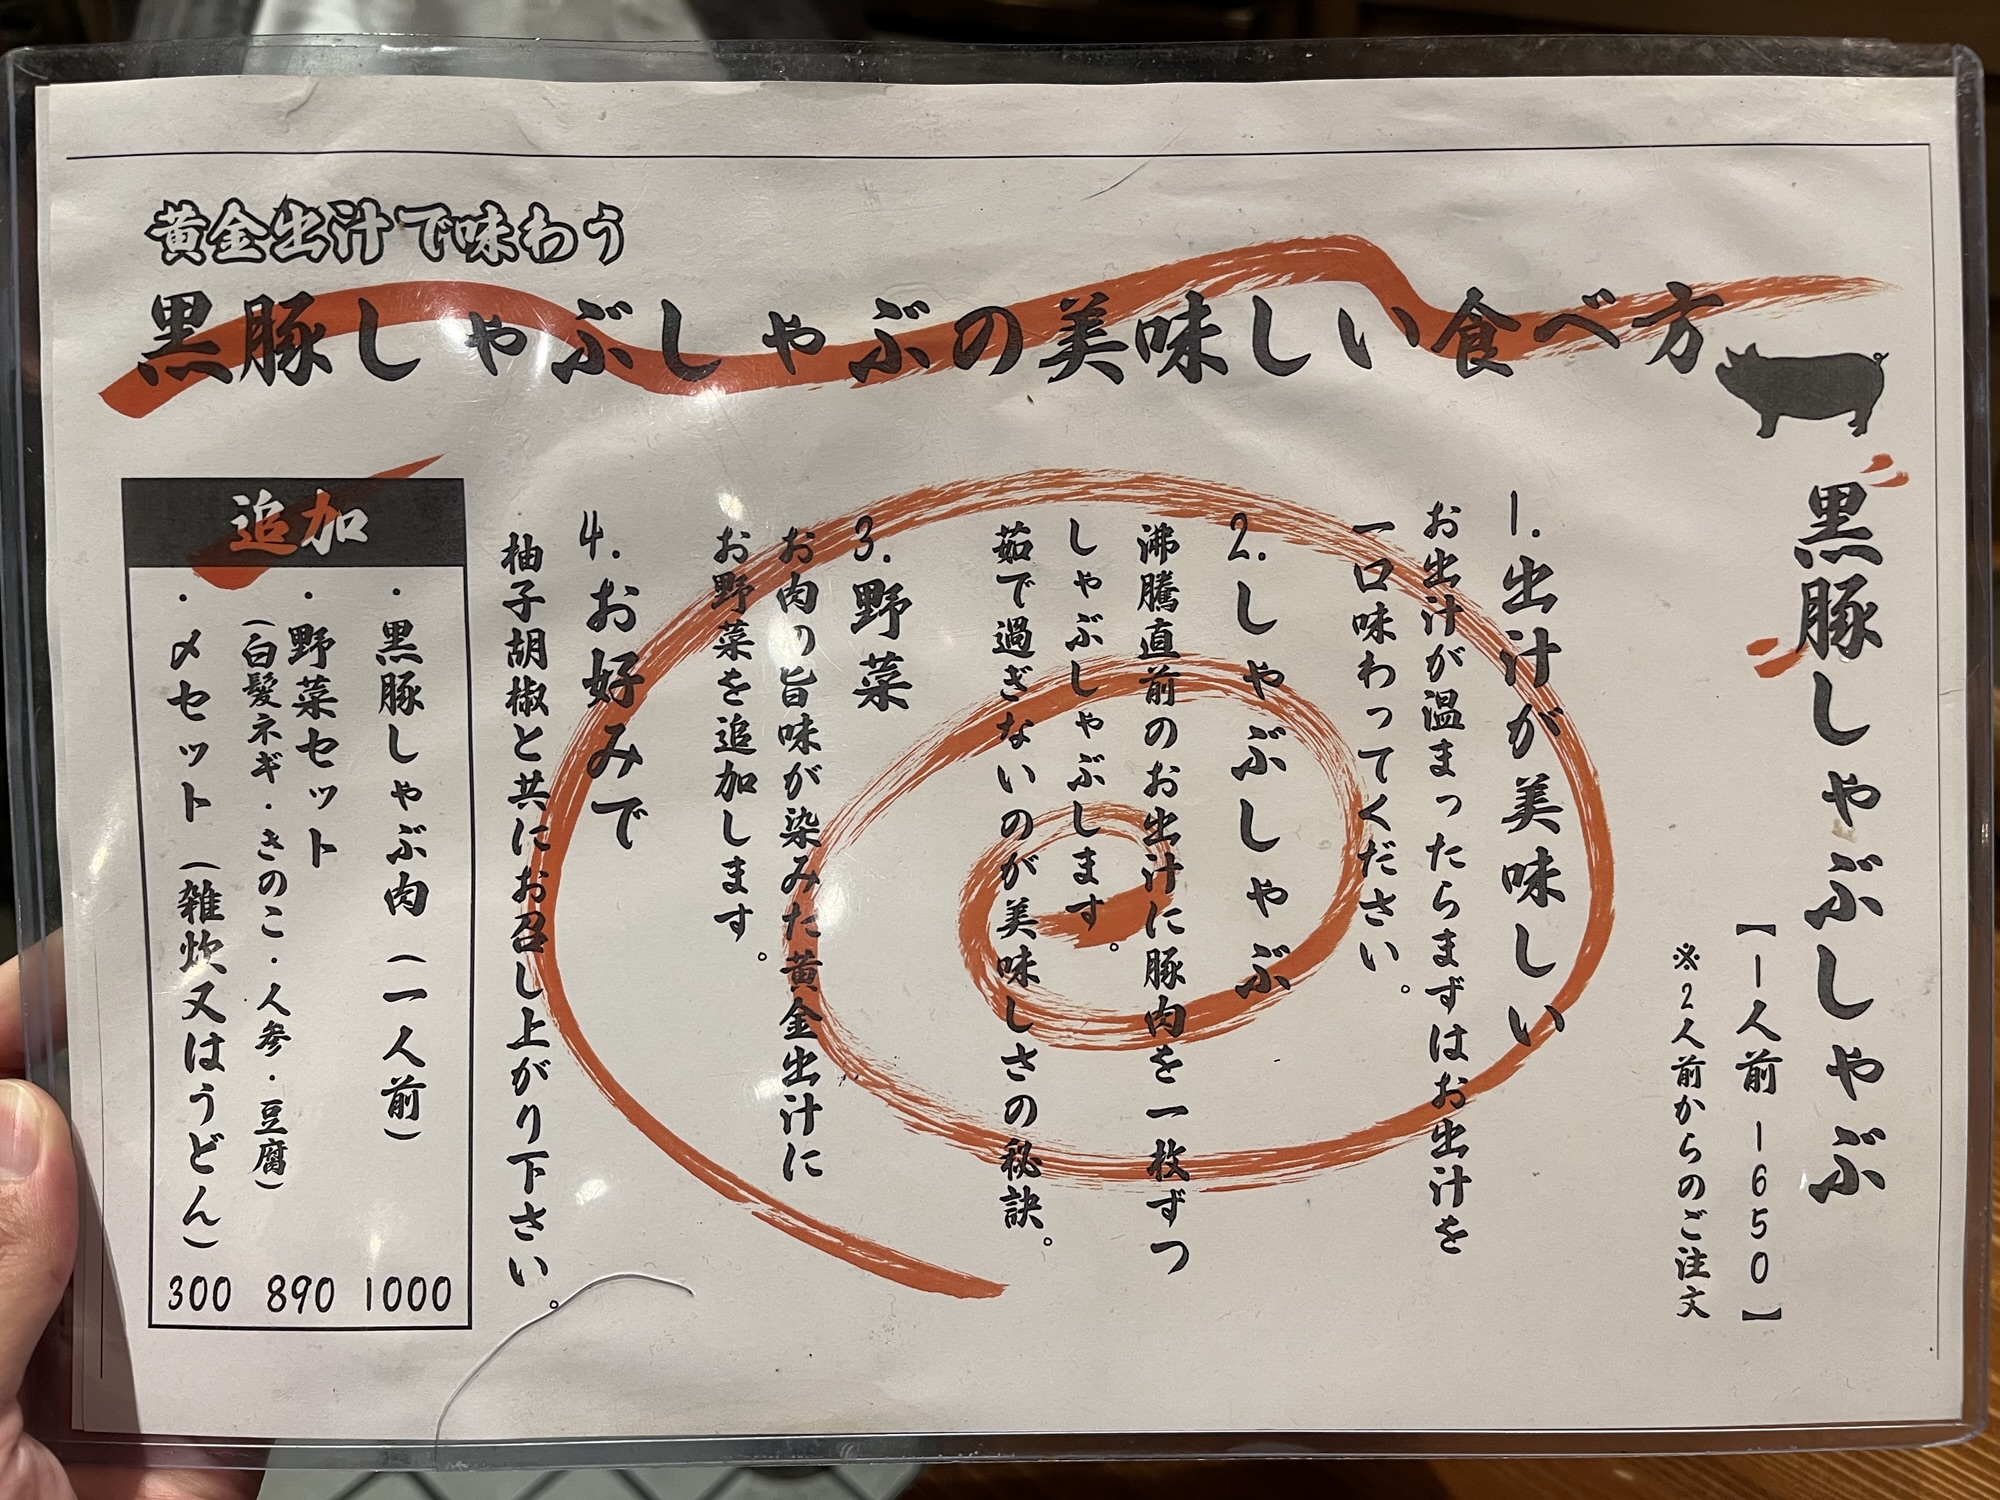 黄金出汁で味わう
黒豚しゃぶしゃぶの美味しい食べ方
黒豚しゃぶしゃぶ
【一人前 1650】
※2人前からのご注文
1.出汁が美味しい
お出汁が温まったらまずはお出汁を
一口味わってください。
2.しゃぶしゃぶ
沸騰直前のお出汁に豚肉を一枚ずつ
しゃぶしゃぶします。
茹で過ぎないのが美味しさの秘訣。
3.野菜
お肉の旨味が染みた黄金出汁に
お野菜を追加します。
4.お好みで
柚子胡椒と共にお召し上がり下さい。
追加
・黒豚しゃぶ肉(一人前) 1000
・野菜セット 890
(白髪ネギ・きのこ・人参・豆腐)
・〆セット(雑炊又はうどん) 300